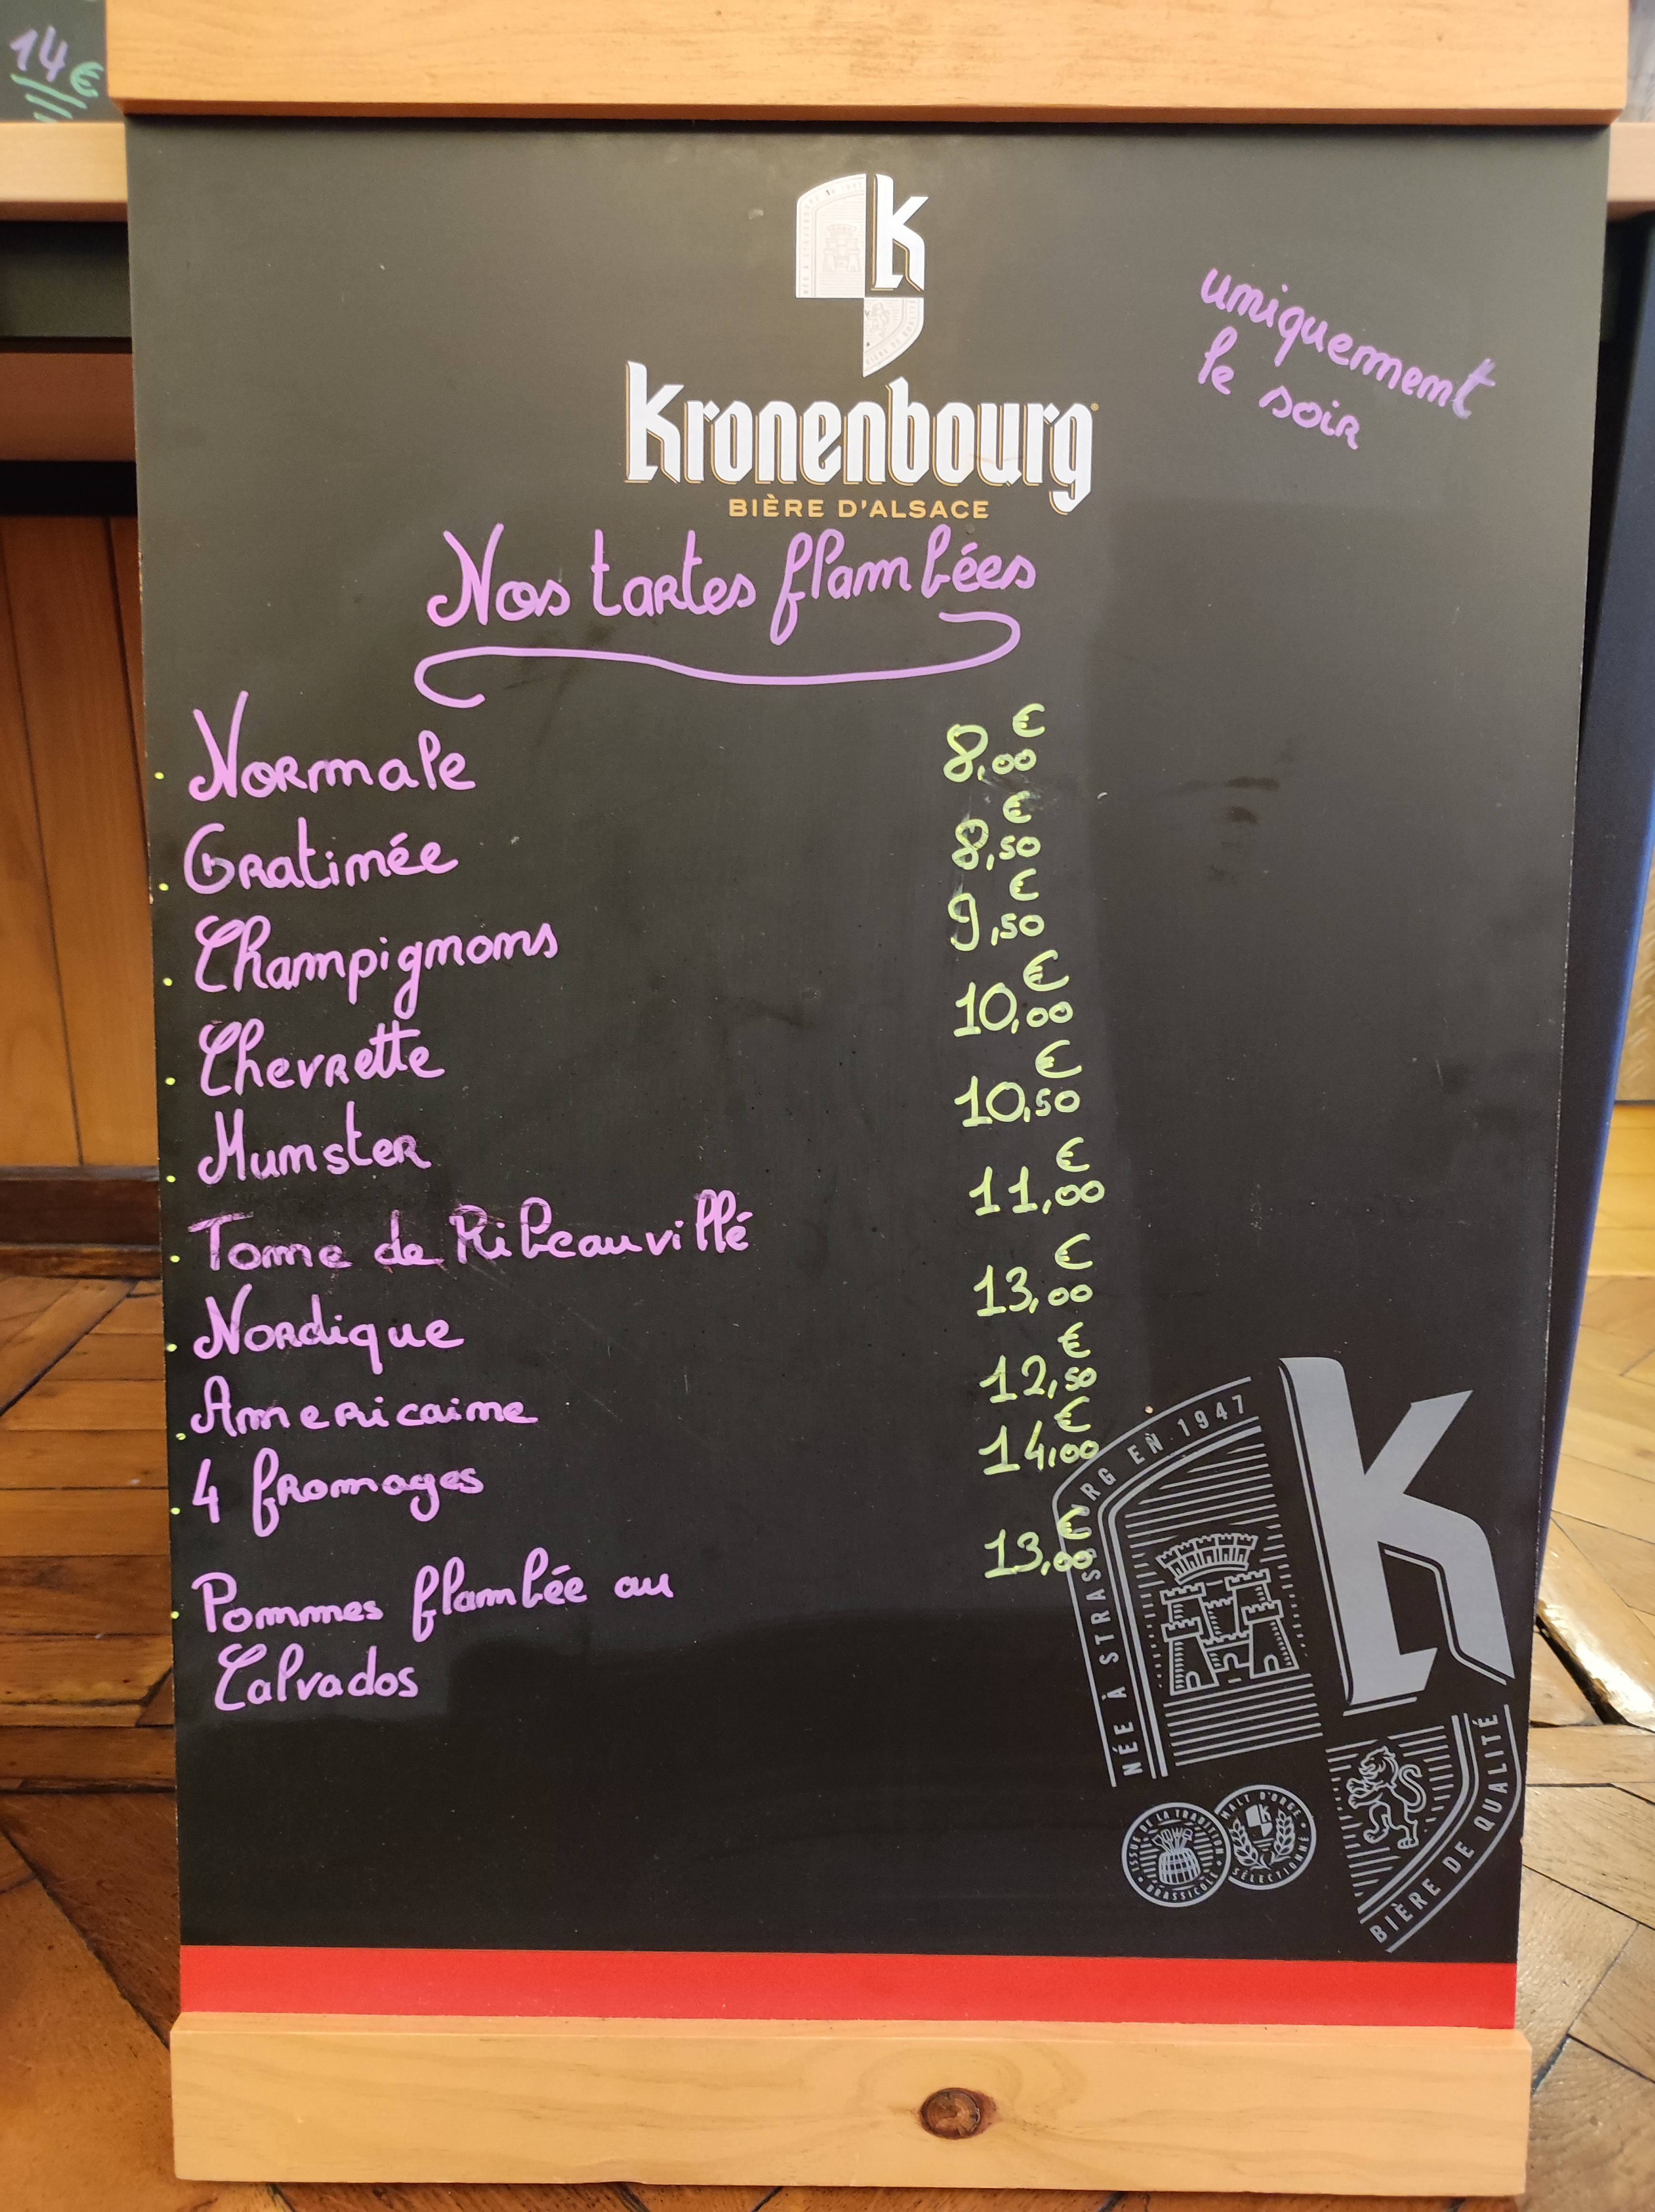 14€
K
Kronenbourg
BIÈRE D'ALSACE
uniquement
le soir
Nos tartes flambées
Normale 8,00€
Gratinée 8,50€
Champignons 9,50€
Chevrette 10,00€
Munster 10,50€
Tome de Ribeauvillé 11,00€
Nordique 13,00€
Americaine 12,50€
4 fromages 14,00€
Pommes flambée au 13,00€
Calvados
NÉE À STRASBOURG EN 1947
K
BIÈRE DE QUALITÉ
ISSUE DE LA TRADITION BRASSICOLE
MALT D'ORGE SÉLECTIONNÉ